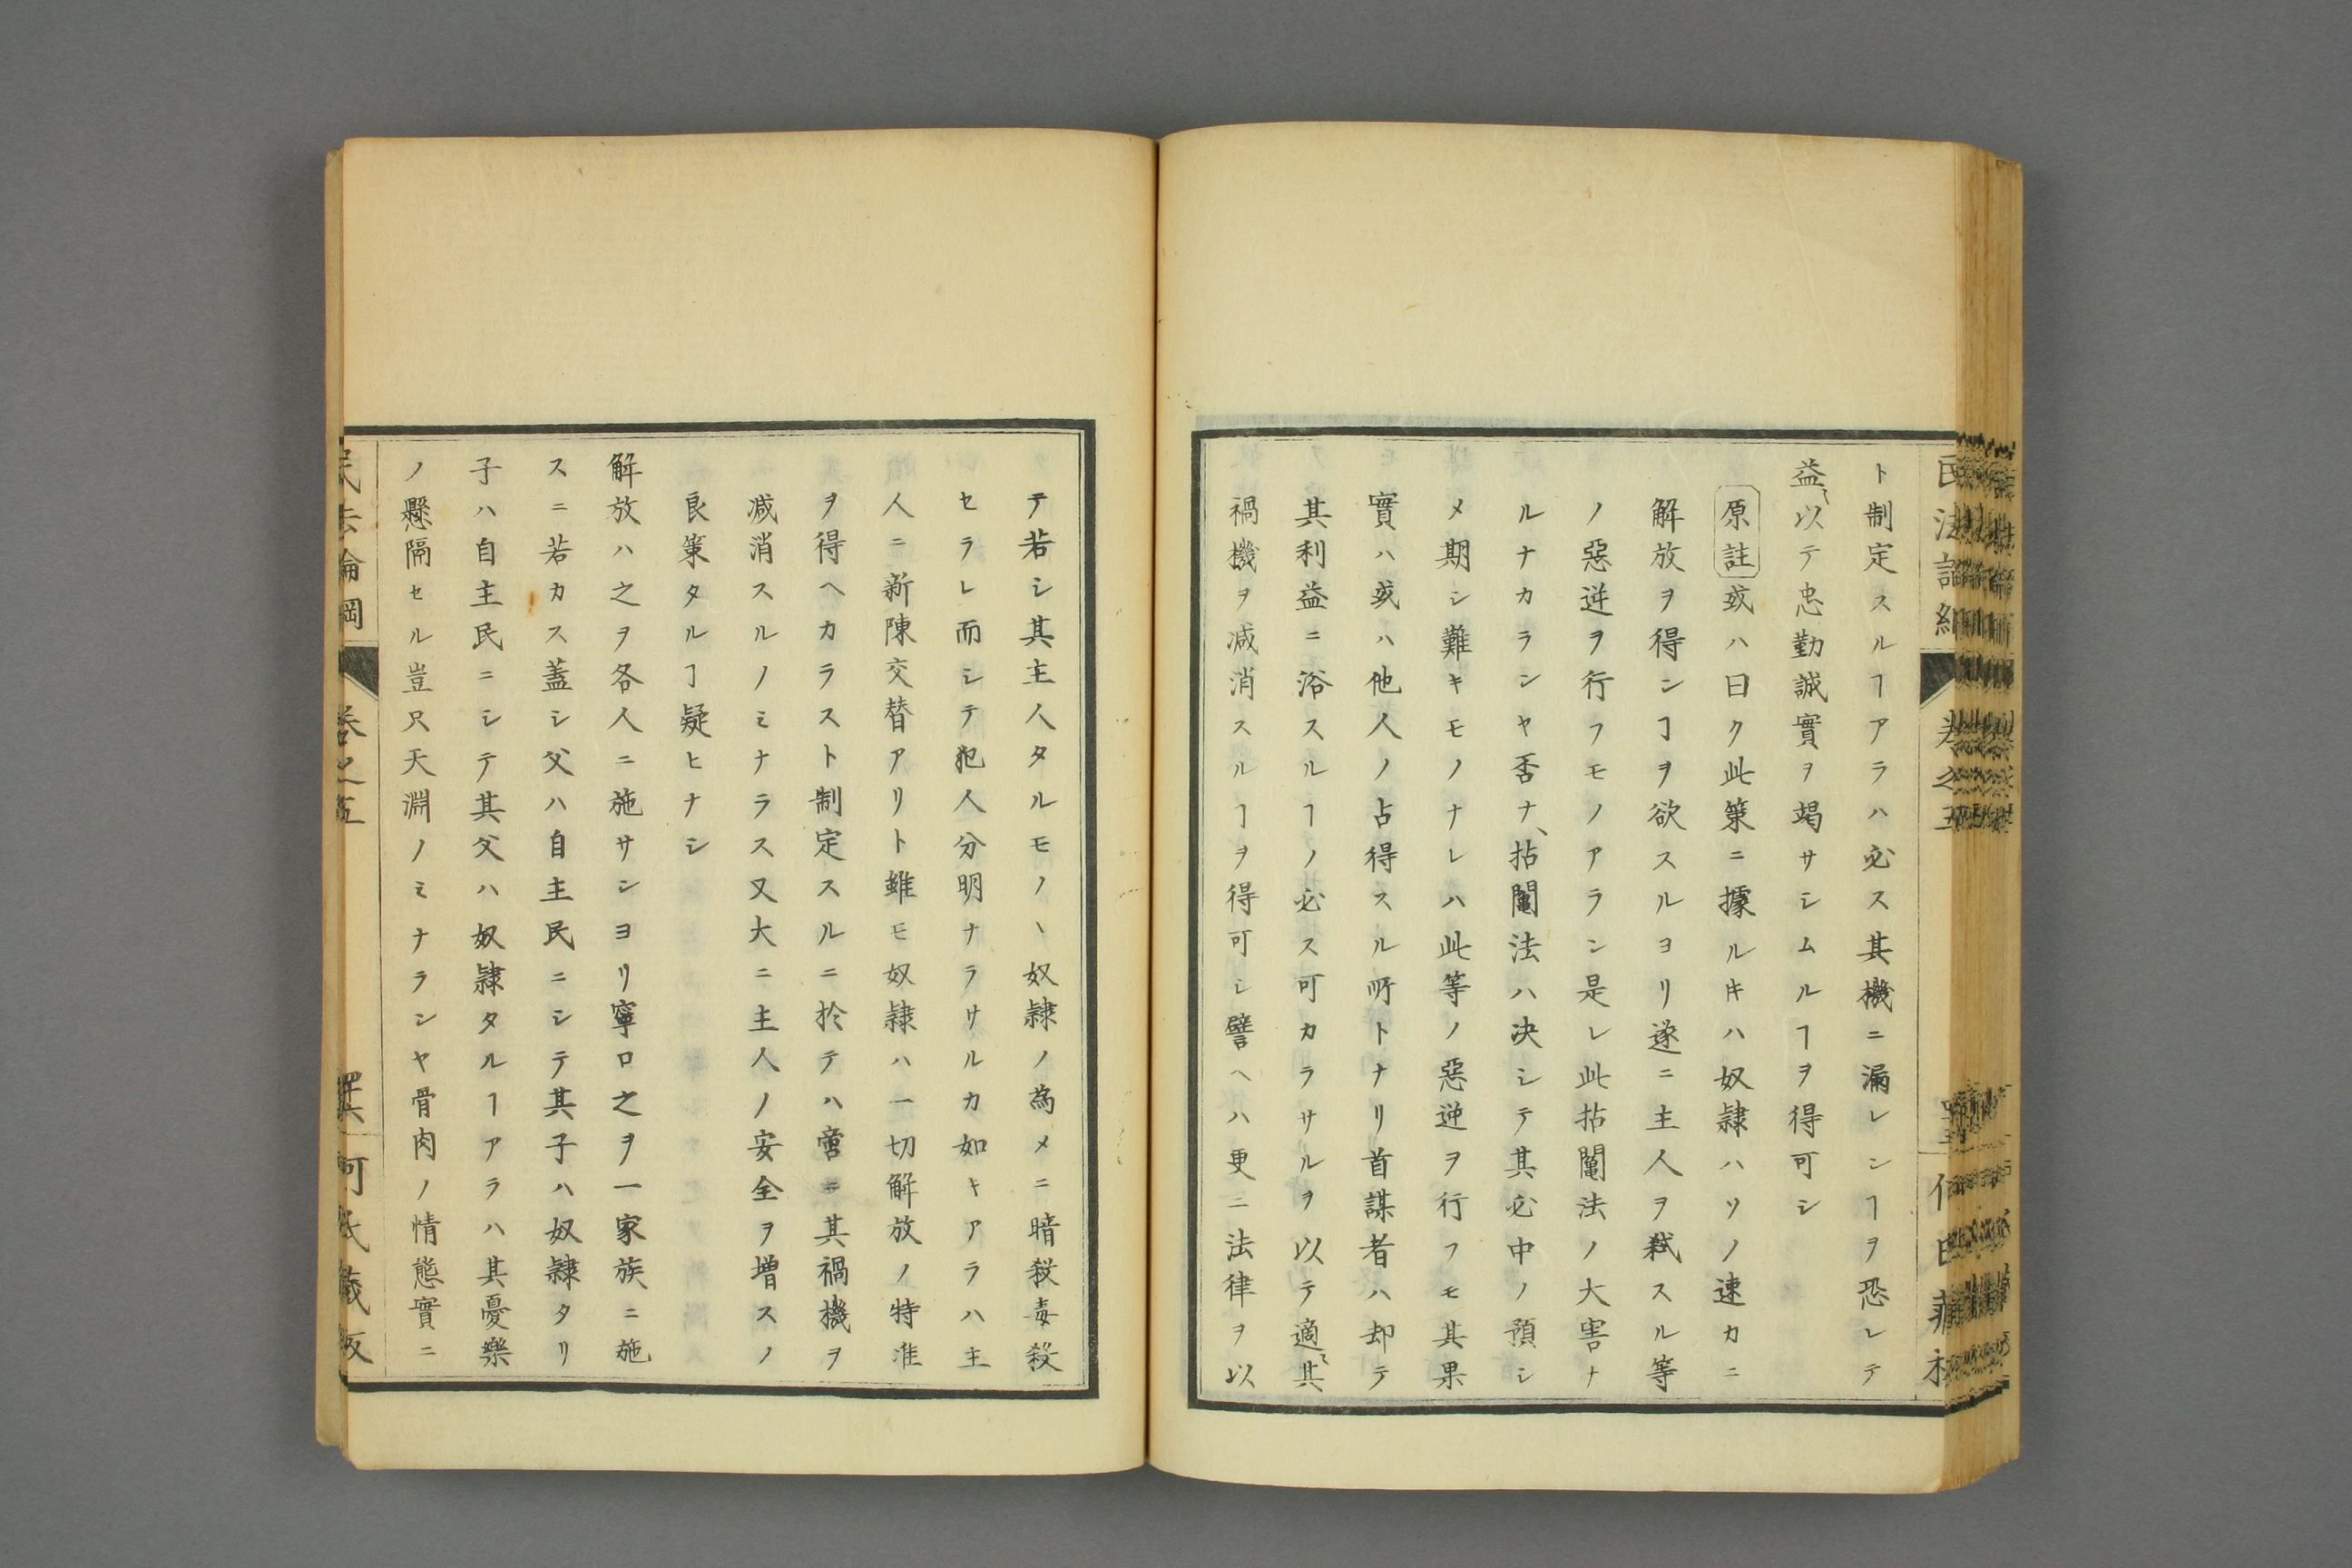 ト制定スルヿアラハ必ス其機ニ漏レンヿヲ恐レテ
益〻以テ忠勤誠實ヲ竭サシムルヿヲ得可シ
原註或ハ曰ク此策ニ據ルキハ奴隷ハソノ速カニ
解放ヲ得ンヿヲ欲スルヨリ遂ニ主人ヲ弑スル等
ノ惡逆ヲ行フモノアラン是レ此拈鬮法ノ大害ナ
ルナカランヤ否ナ、拈鬮法ハ决シテ其必中ノ預シ
メ期シ難キモノナレハ此等ノ惡逆ヲ行フモ其果
實ハ或ハ他人ノ占得スル所トナリ首謀者ハ却テ
其利益ニ浴スルヿノ必ス可カラサルヲ以テ適〻其
禍機ヲ减消スルヿヲ得可シ譬ヘハ更ニ法律ヲ以
テ若シ其主人タルモノヽ奴隷ノ為メニ暗殺毒殺
セラレ而シテ犯人分明ナラサルカ如キアラハ主
人ニ新陳交替アリト雖モ奴隷ハ一切解放ノ特准
ヲ得ヘカラスト制定スルニ於テハ啻ニ其禍機ヲ
减消スルノミナラス又大ニ主人ノ安全ヲ増スノ
良策タルヿ疑ヒナシ
解放ハ之ヲ各人ニ施サンヨリ寧ロ之ヲ一家族ニ施
スニ若カス蓋シ父ハ自主民ニシテ其子ハ奴隷タリ
子ハ自主民ニシテ其父ハ奴隷タルヿアラハ其憂樂
ノ懸隔セル豈只天淵ノミナランヤ骨肉ノ情態實ニ
民法論綱
卷之五